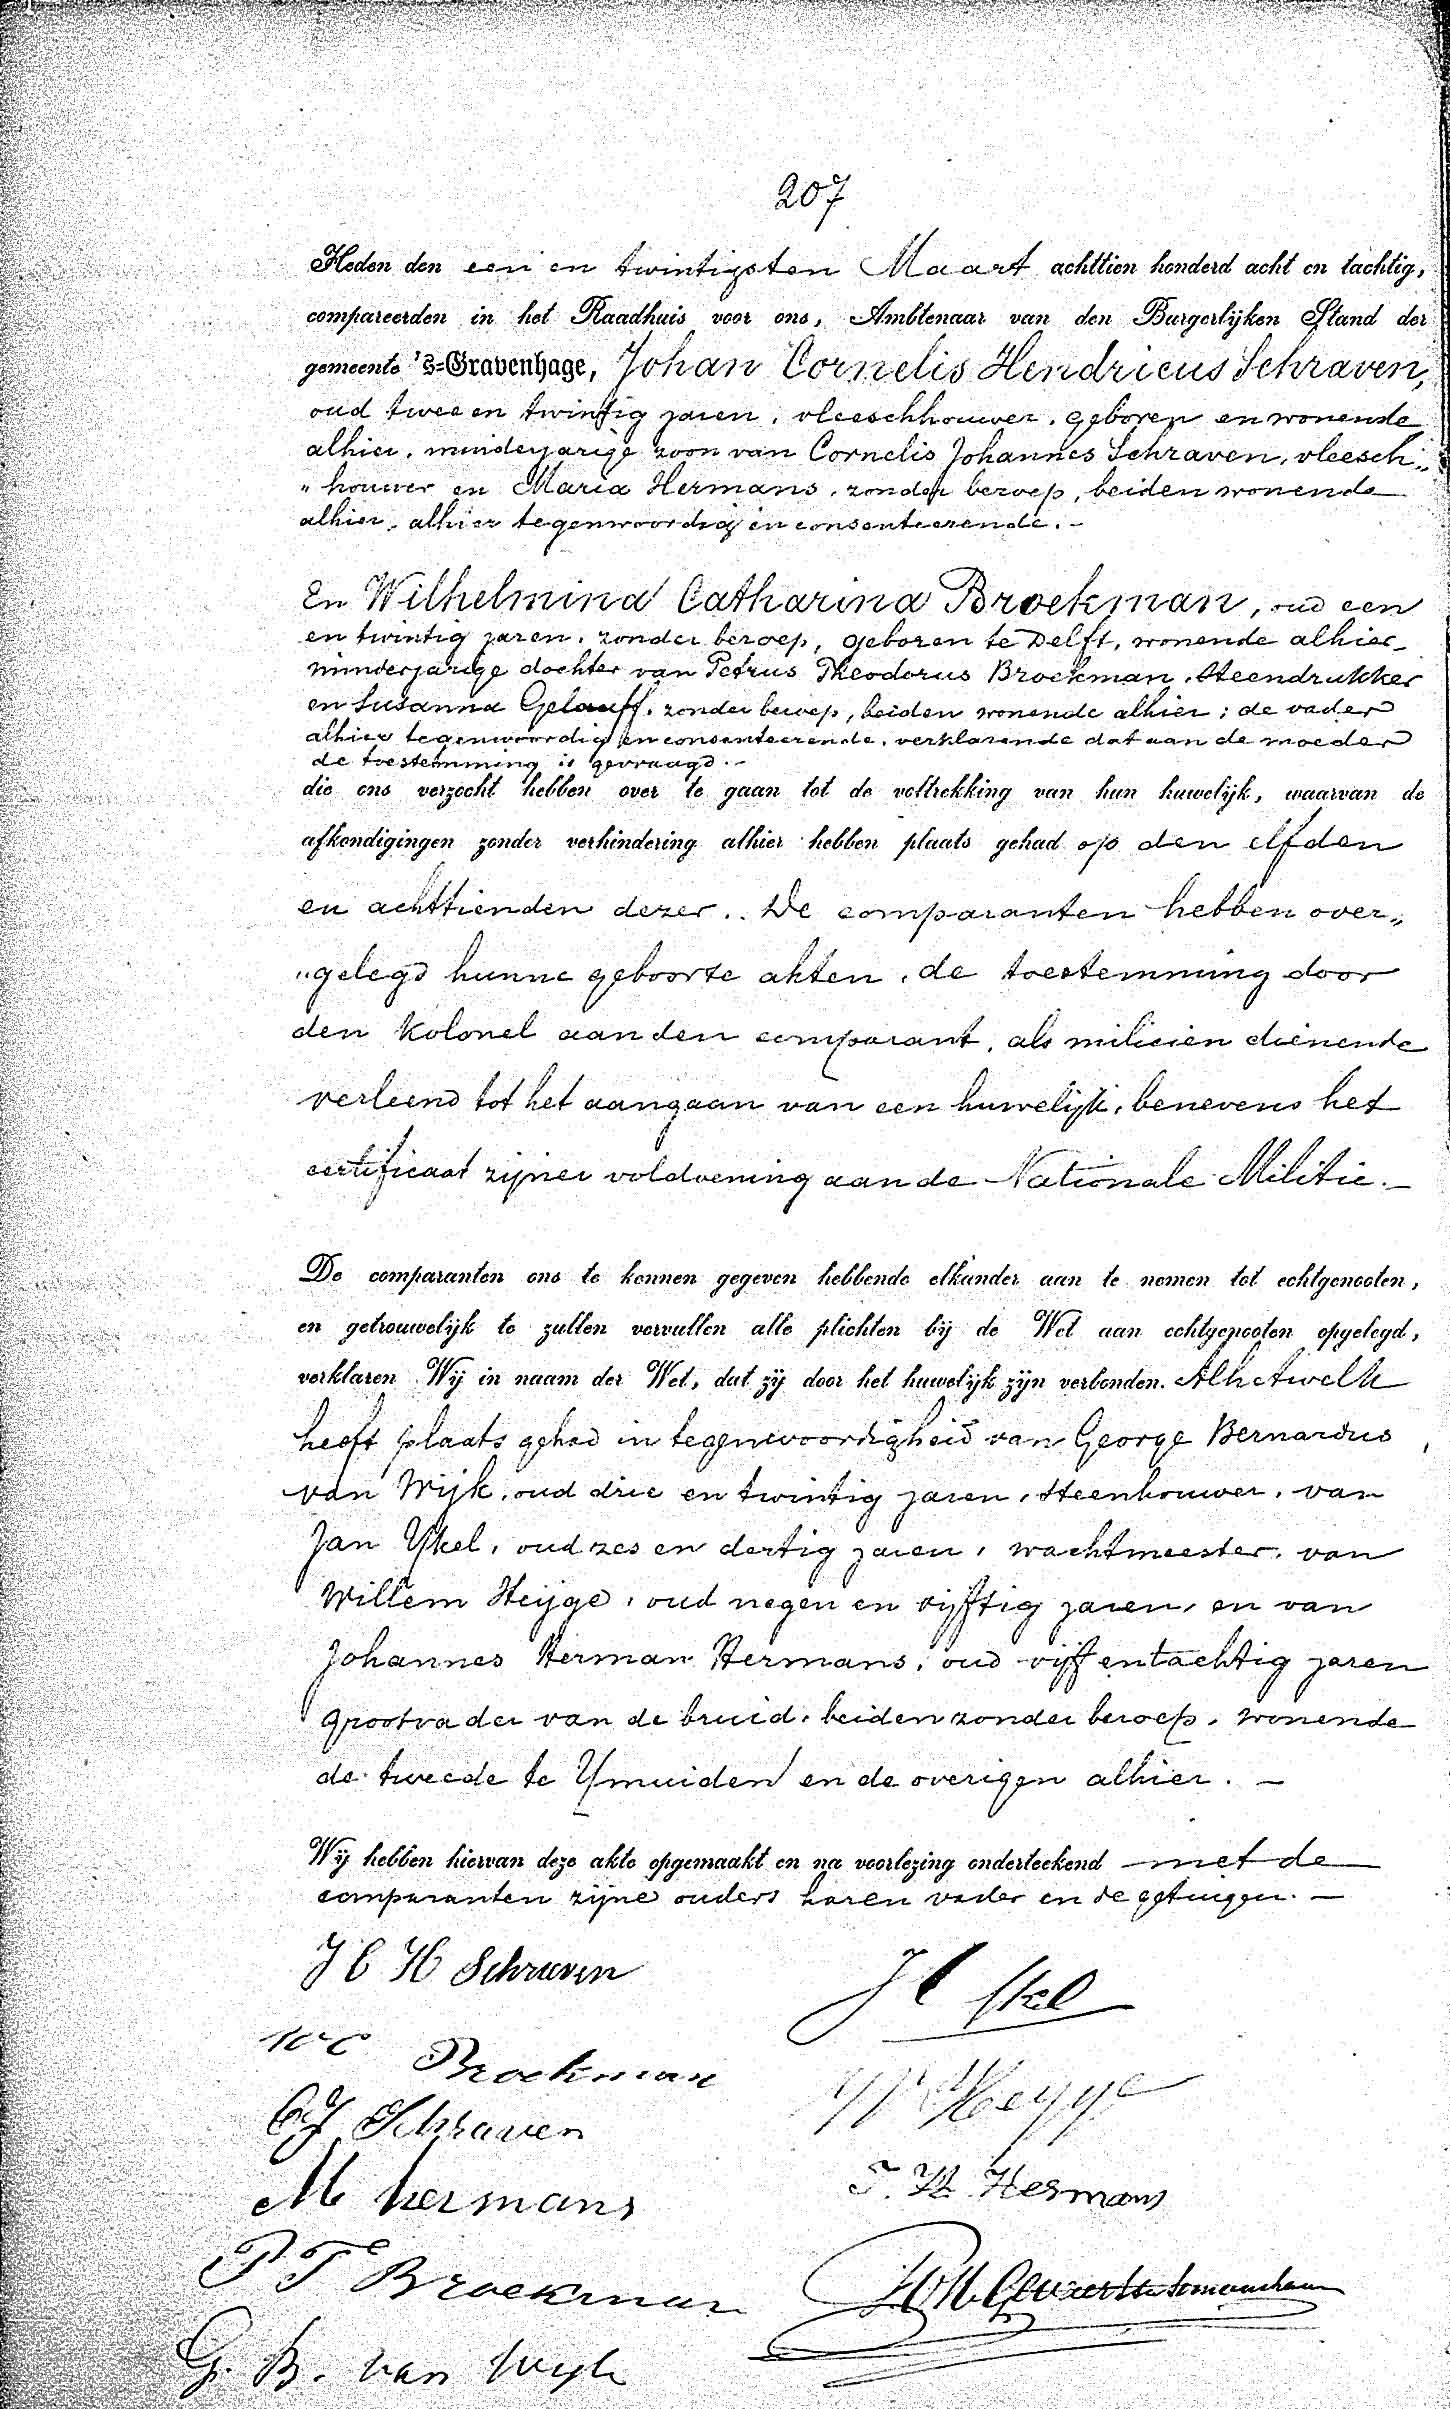 207
Heden den een en twintigsten Maart achttien honderd acht en tachtig,
compareerden in het Raadhuis voor ons, Ambtenaar van den Burgerlijken Stand der
gemeente 's-Gravenhage, Johan Cornelis Hendricus Schraven,
oud twee en twintig jaren, vleeschhouwer, geboren en wonende
alhier, minderjarige zoon van Cornelis Johannes Schraven, vleesch„
„houwer en Maria Hermans, zonder beroep, beiden wonende
alhier, alhier tegenwoordig en consenteerende.-
En Wilhelmina Catharina Broekman, oud een
en twintig jaren, zonder beroep, geboren te Delft, wonende alhier,
minderjarige dochter van Petrus Theodorus Broekman, steendrukker
en Susanna Gelauff, zonder beroep, beiden wonende alhier; de vader
alhier tegenwoordig en consenteerende, verklarende dat aan de moeder
de toestemming is gevraagd.-
die ons verzocht hebben over te gaan tot de voltrekking van hun huwelijk, waarvan de
afkondigingen zonder verhindering alhier hebben plaats gehad op den elfden
en achttienden dezer.. De comparanten hebben over„
„gelegd hunne geboorte akten, de toestemming door
den Kolonel aan den comparant, als milicien dienende
verleend tot het aangaan van een huwelijk, benevens het
certificaat zijner voldoening aan de Nationale Militie.-
De comparanten ons te kennen gegeven hebbende elkander aan te nemen tot echtgenooten,
en getrouwelijk te zullen vervullen alle plichten bij de Wet aan echtgenooten opgelegd,
verklaren Wij in naam der Wet, dat zij door het huwelijk zijn verbonden. Alhetwelk
heeft plaats gehad in tegenwoordigheid van George Bernardus
van Wijk, oud drie en twintig jaren, steenhouwer, van
Jan IJkel, oud zes en dertig jaren, wachtmeester, van
Willem Heijge, oud negen en vijftig jaren, en van
Johannes Herman Hermans, oud vijf en tachtig jaren
grootvader van de bruid, beiden zonder beroep, wonende
de tweede te IJmuiden en de overigen alhier. -
Wij hebben hiervan deze akte opgemaakt en na voorlezing onderteekend met de
comparanten zijne ouders haren vader en de getuigen. -
J C H Schraven
W C Broekman
CJ Schraven
M hermans
P T Broekman
G. B. van Wijk
J IJkel
W Heyge
J. H. Hermans